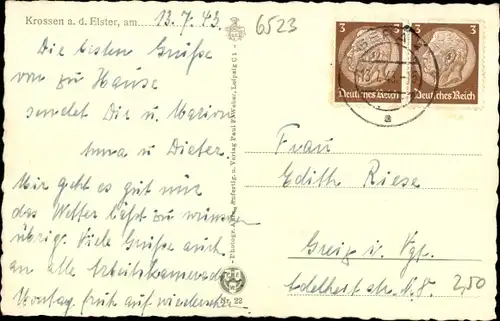 Krossen a. d. Elster, am 13. 7. 43.
6523
Die besten Grüße
von zu Hause
sendet Dir u. Marion
Anna u Dieter.
Mir geht es gut nur
das Wetter läßt zu wünschen
übrig. Viele Grüße auch
an alle Arbeitskameraden
Montag früh auf wiedersehen
Photogr. u. Verlag Paul F. Weber, Leipzig C 1
Nr. 22
3 3
Deutsches Reich Deutsches Reich
a
Frau
Edith Riese
Greiz i. Vgt.
Adelheidstr. N. 8
2,50